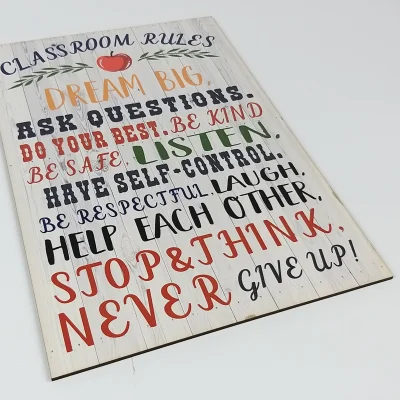 CLASSROOM RULES
DREAM BIG,
ASK QUESTIONS.
DO YOUR BEST. BE KIND
BE SAFE. LISTEN,
HAVE SELF-CONTROL.
BE RESPECTFUL LAUGH,
HELP EACH OTHER,
STOP&THINK,
NEVER GIVE UP!